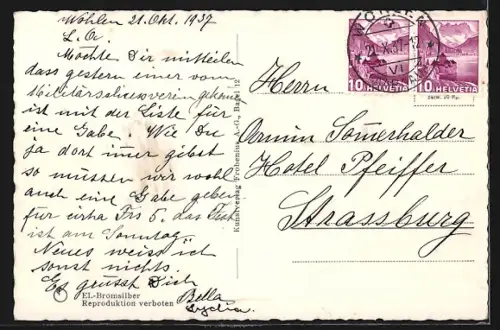 Wohlen 21. Okt. 1937
L. O.
Möchte Dir mitteilen
dass gestern einer vom
Militärschiessverein gekomm
ist mit der Liste für
eine Gabe. Wie Du
ja dort imer gibst
so müssen wir wohl
auch eine Gabe geben
für cirka Frs 5. das Fest
ist am Sonntag.
Neues weiss ich
sonst nichts.
Es grüsst Dich
Bella
EL-Bromsilber
Reproduktion verboten
Kunstverlag Frobenius A.-G., Basel 12
WOHLEN
21. X. 37-12
VI
10 HELVETIA
10 HELVETIA
Herrn
Armin Somerhalder
Hotel Pfeiffer
Strassburg